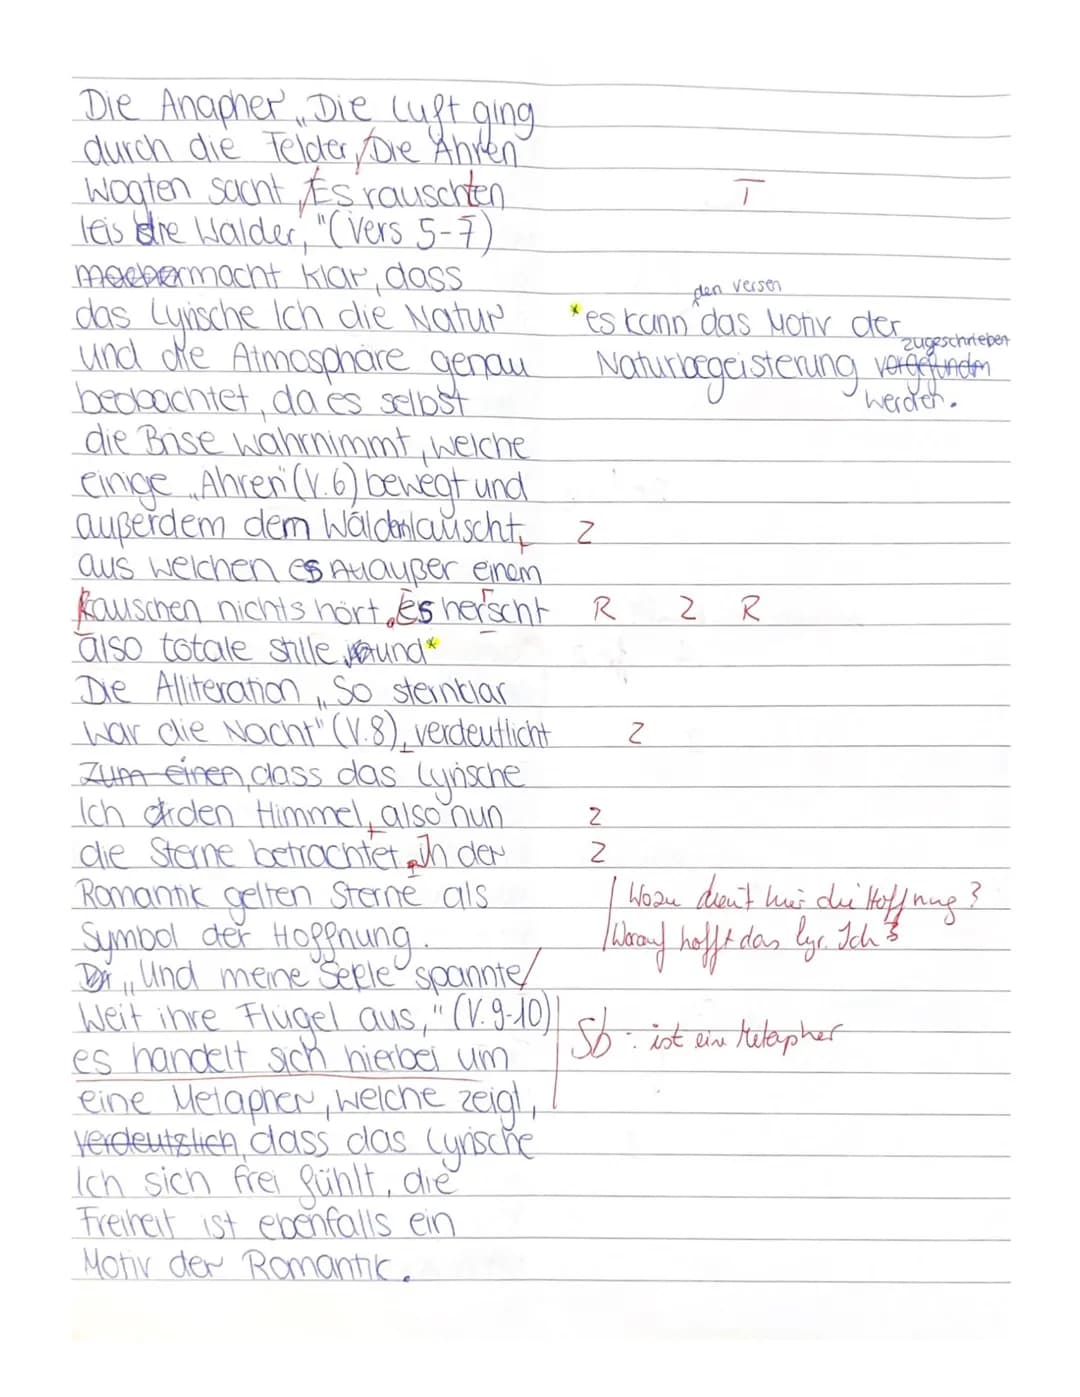 Die Anapher „Die Luft ging
durch die Felder/Die Ähren
wogten sacht/Es rauschten
T
leis die Wälder,"(Vers 5-7)
macht klar, dass
den Versen
das Lyrische Ich die Natur
*es kann das Motiv der
zugeschrieben
und die Atmosphäre genau
Naturbegeisterung vorgefunden
beobachtet, da es selbst
werden.
die Brise wahrnimmt, welche
einige „Ähren"(V.6) bewegt und
außerdem dem Wäldern lauscht, Z
aus welchen es außer einem
Rauschen nichts hört. Es herrscht R Z R
also totale stille und*
Die Alliteration „So sternklar
war die Nacht" (V.8), verdeutlicht Z
Zum einen, dass das Lyrische
Ich den Himmel, also nun Z
die Sterne betrachtet. In der Z
Romantik gelten Sterne als
Wozu dient hier die Hoffnung?
Symbol der Hoffnung.
Worauf hofft das lyr. Ich?
„Und meine Seele spannte/
Weit ihre Flügel aus," (V.9-10)
Sb: ist eine Metapher
es handelt sich hierbei um
eine Metapher, welche zeigt,
verdeutslich, dass das Lyrische
Ich sich frei fühlt, die
Freiheit ist ebenfalls ein
Motiv der Romantik.